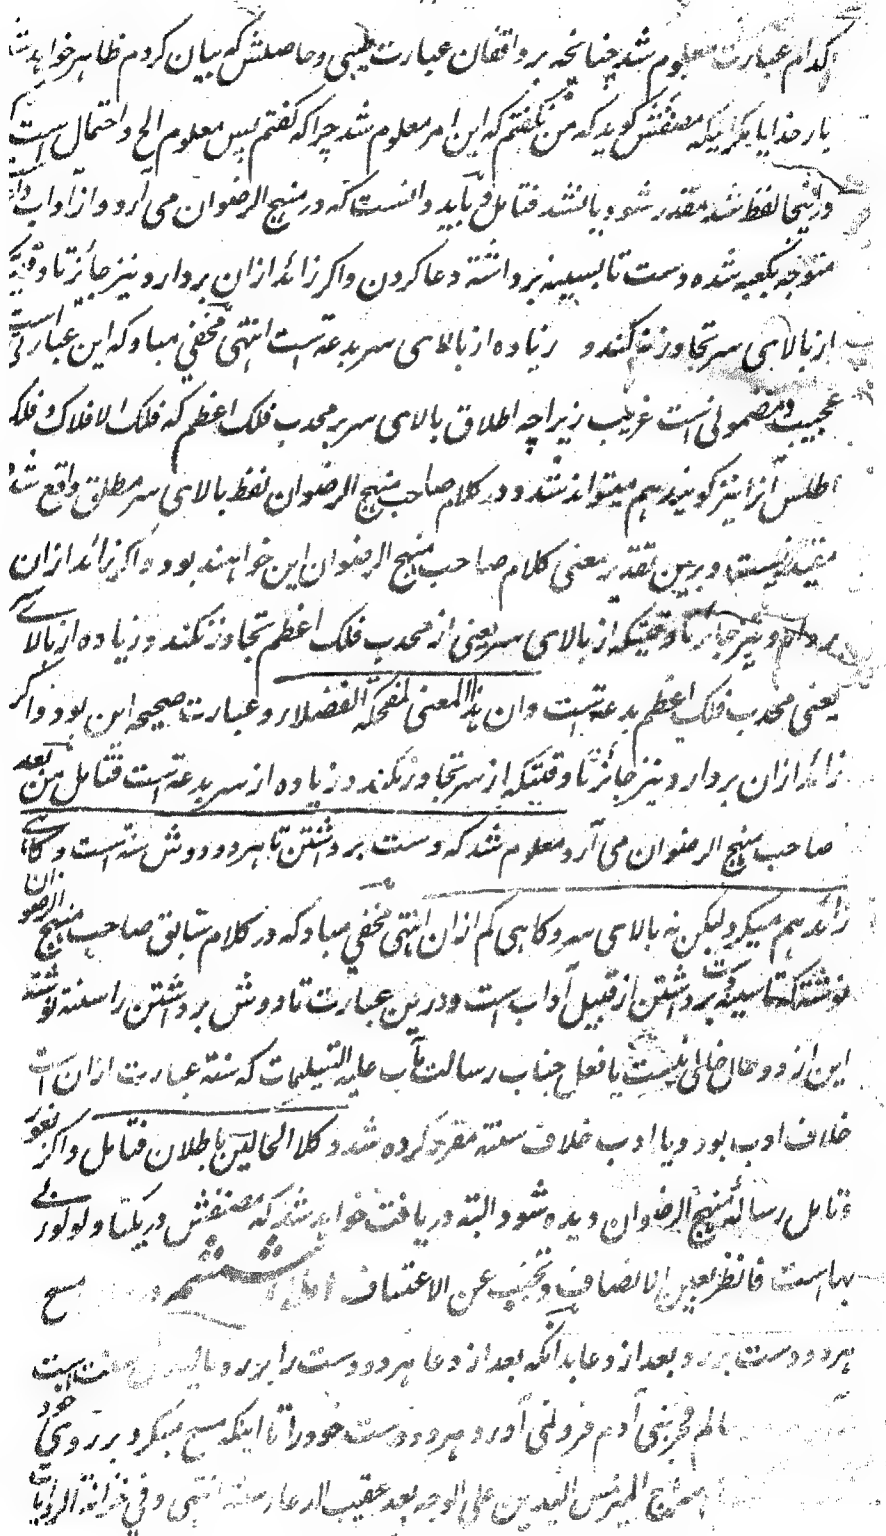 کدام عبارت معلوم شد چنانچه بر واقفان عبارت طیبی و حاصلش که بیان کردم ظاهر خواهد شد
بار خدایا مگر اینکه مصنفش گوید که من نگفتم که این امر معلوم شد چرا که گفتم پس معلوم الخ و احتمال است
در اینجا لفظ شد مقدر شود یا نشد فتامل و باید دانست که در منهج الرضوان می آرد و از آداب دعا
متوجه بکعبه شده دست تا بسینه برداشته دعا کردن و اگر زائد ازان بردارد نیز جائز تا وقتیکه
از بالای سر تجاوز نکند و زیاده از بالای سر بدعت است انتهی مخفی مباد که این عبارتی است
عجیب و مضمونی است غریب زیرا چه اطلاق بالای سر بر محدب فلک اعظم که فلک الافلاک و فلک
اطلس آنرا نیز گویند هم میتواند شد و در کلام صاحب منهج الرضوان لفظ بالای سر مطلق واقع شده
مقید نیست و برین تقدیر معنی کلام صاحب منهج الرضوان این خواهند بود و اگر زائد ازان
بردارد نیز جائز تا وقتیکه از بالای سر یعنی از محدب فلک اعظم تجاوز نکند و زیاده از بالای سر
یعنی محدب فلک اعظم بدعت است و ان هذا المعنی لمضحکة الفضلاء و عبارت صحیحه این بود و اگر
زائد ازان بردارد نیز جائز تا وقتیکه از سر تجاوز نکند و زیاده از سر بدعت است فتامل من بعد
صاحب منهج الرضوان می آرد معلوم شد که دست برداشتن تا هر دو دوش سنت است و گاهی ازان
زائد هم میکرد لیکن نه بالای سر و گاهی کم ازان انتهی مخفی مباد که در کلام سابق صاحب منهج الرضوان
نوشته که تا سینه دست برداشتن از قبیل آداب است و درین عبارت تا دوش برداشتن را سنت نوشته
این از دو حال خالی نیست یا فعل جناب رسالت مآب علیه التسلیمات که سنت عبارت ازان است
خلاف ادب بود و یا ادب خلاف سنت مقرر کرده شد و کلا الحالین باطلان فتامل و اگر بغور
و تامل رساله منهج الرضوان دیده شود البته دریافت خواهد شد که مصنفش در یکتا و لولوی بی
بها است فانظر بعین الانصاف و تجنب عن الاعتساف ششم مسح
هر دو دست بر رو بعد از دعا بدانکه بعد از دعا هر دو دست را بر رو مالیدن سنت است
عالم فخر بنی آدم فرو نمی آورد هر دو دست خود را تا اینکه مسح میکرد بر روی خود
مسح الیدین علی الوجه بعد عقیب الدعاء سنة انتهی و فی خزانة الروایات